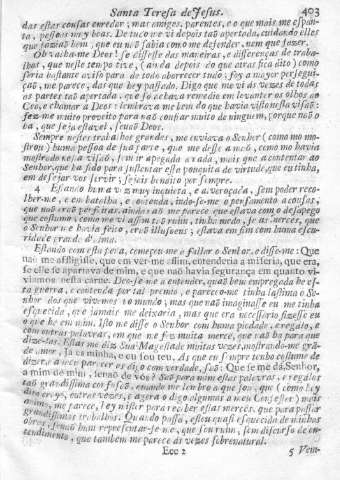 Santa Teresa de Jesus. 403
das estar cousas enredor; mas amigos, parentes, e o que mais me espan-
ta, pessoas muy boas. De tuco me vi depois taõ apertada, cuidando elles
que faziaõ bem, que eu naõ sabia como me defender, nem que fazer.
Oh valha-me Deos! se dissesse das maneiras, e differenças de traba-
lhos, que neste tempo tive, (ainda depois do que atras fica dito) como
seria bastante aviso para de todo aborrecer tudo: foy a mayor persegui-
çaõ, me parece, das que hey passado. Digo que me vi ás vezes de todas
as partes taõ apertada, que só achava remedio em levantar os olhos ao
Ceo, e chamar a Deos: lembrava-me bem do que havia visto nesta visaõ:
fez-me muito proveito para naõ confiar muito de ninguem, porque naõ o
ha, que seja estavel, senaõ Deos.
Sempre nestes trabalhos grandes, me enviava o Senhor (como mo mo-
strou) huma pessoa de sua parte, que me desse a maõ, como mo havia
mostrado nesta visaõ, sem ir apegada a nada, mais que a contentar ao
Senhor, que ha sido para sustentar essa pouquita de virtude, que eu tinha,
em desejar vos servir; sejais bendito por sempre.
4 Estando huma vez muy inquieta, e alvoroçada, sem poder reco-
lher-me, e em batalha, e contenda, indo-se-me o pensamento a cousas,
que naõ eraõ perfeitas, ainda naõ me parece que estava com o desapego
que costumo, como me vi assim taõ ruim, tinha medo, se as mercès, que
o Senhor me havia feito, eraõ illusoens; estava em fim com huma escu-
ridade grande d'alma.
Estando com esta pena, começou-me a fallar o Senhor, e disse-me: Que
naõ me affligisse, que em ver-me assim, entenderia a miseria, que era,
se elle se apartava de mim, e que naõ havia segurança em quanto vi-
viamos nesta carne. Deo-se-me a entender, quaõ bem empregada he es-
ta guerra, e contenda por tal premio, e pareceo-me tinha lastima o Se-
nhor dos que vivemos no mundo, mas que naõ imaginasse eu me tinha
esquecida, que jamais me deixaria, mas que era necessario fizesse eu
o que he em mim. Isto me disse o Senhor com huma piedade, e regalo, e
com outras palavras, em que me fez muita mercè, que naõ ha para que
dize-las. Estas me diz Sua Magestade muitas vezes, mostrando-me gran-
de amor, Ja es minha, e eu sou teu. As que eu sempre tenho costume de
dizer, e a meu parecer as digo com verdade, saõ: Que se me dá, Senhor,
a mim de mim, senaõ de vòs? Saõ para mim estas palavras, e regalos
taõ grandissima confusaõ, quando me lembro a que sou, que (como hey
dito creyo, outras vezes, e agora o digo algumas a meu Confessor) mais
animo, me parece, hey mister para receber estas mercès, que para passar
grandissimos trabalhos. Quando passa, estou quasi esquecida de minhas
obras, senaõ hum representar-se-me, que sou ruim, sem discurso de en-
tendimento, que tambem me parece às vezes sobrenatural.
Eee 2 5 Vem-